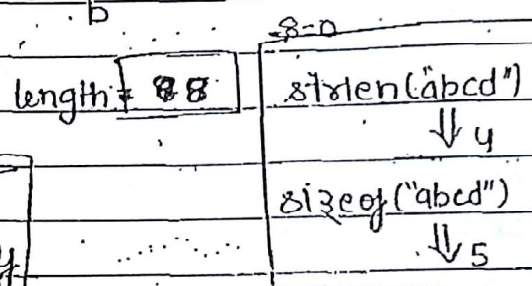 b
8-0
length = 88
strlen("abcd")
⇓ 4
sizeof("abcd")
⇓ 5